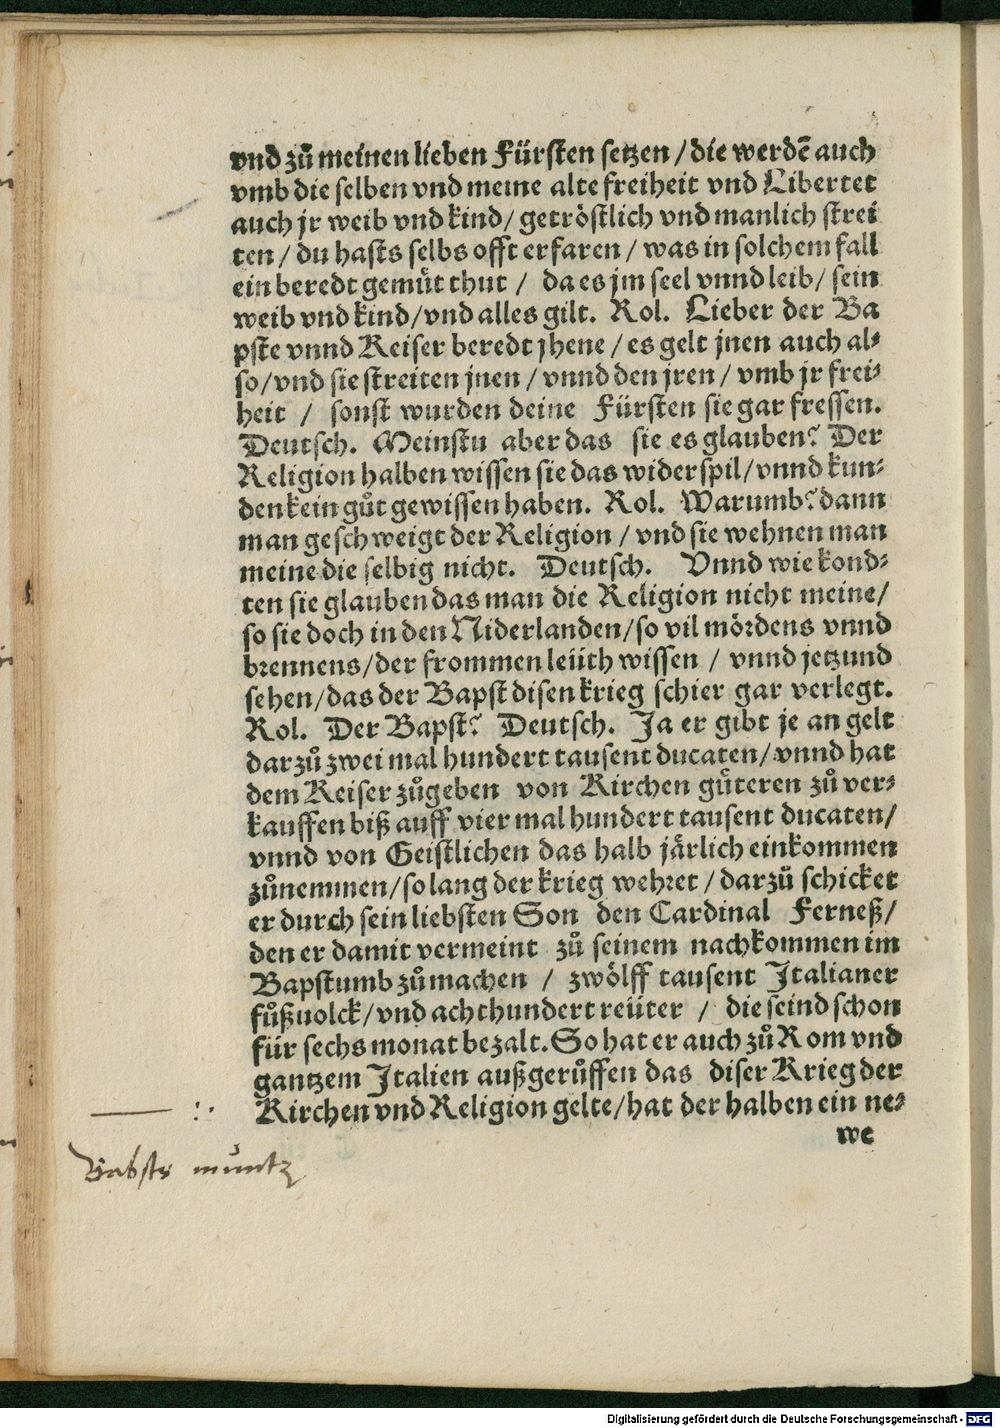 vnd zů meinen lieben Fürsten setzen / die werdē auch
vmb die selben vnd meine alte freiheit vnd Libertet
auch jr weib vnd kind / getröstlich vnd manlich strei
ten / du hasts selbs offt erfaren / was in solchem fall
ein beredt gemüt thut / da es jm seel vnnd leib / sein
weib vnd kind / vnd alles gilt. Rol. Lieber der Ba
pste vnnd Keiser beredt jhene / es gelt jnen auch al⸗
so / vnd sie streiten jnen / vnnd den jren / vmb jr frei⸗
heit / sonst wurden deine Fürsten sie gar fressen.
Deutsch. Meinstu aber das sie es glauben? Der
Religion halben wissen sie das widerspil / vnnd kun⸗
den kein gůt gewissen haben. Rol. Warumb? dann
man geschweigt der Religion / vnd sie wehnen man
meine die selbig nicht. Deutsch. Vnnd wie kond⸗
ten sie glauben das man die Religion nicht meine /
so sie doch in den Niderlanden / so vil mördens vnnd
brennens / der frommen leüth wissen / vnnd jetzund
sehen / das der Bapst disen krieg schier gar verlegt.
Rol. Der Bapst? Deutsch. Ja er gibt je an gelt
darzů zwei mal hundert tausent ducaten / vnnd hat
dem Keiser zůgeben von Kirchen güteren zů ver⸗
kauffen biß auff vier mal hundert tausent ducaten /
vnnd von Geistlichen das halb järlich einkommen
zůnemmen / so lang der krieg wehret / darzů schicket
er durch sein liebsten Son den Cardinal Ferneß /
den er damit vermeint zů seinem nachkommen im
Bapstumb zůmachen / zwölff tausent Italianer
fůßuolck / vnd achthundert reüter / die seind schon
für sechs monat bezalt. So hat er auch zů Rom vnd
gantzem Italien außgerůffen das diser Krieg der
Kirchen vnd Religion gelte / hat der halben ein ne⸗
we
Babsts můntz
Digitalisierung gefördert durch die Deutsche Forschungsgemeinschaft - DFG